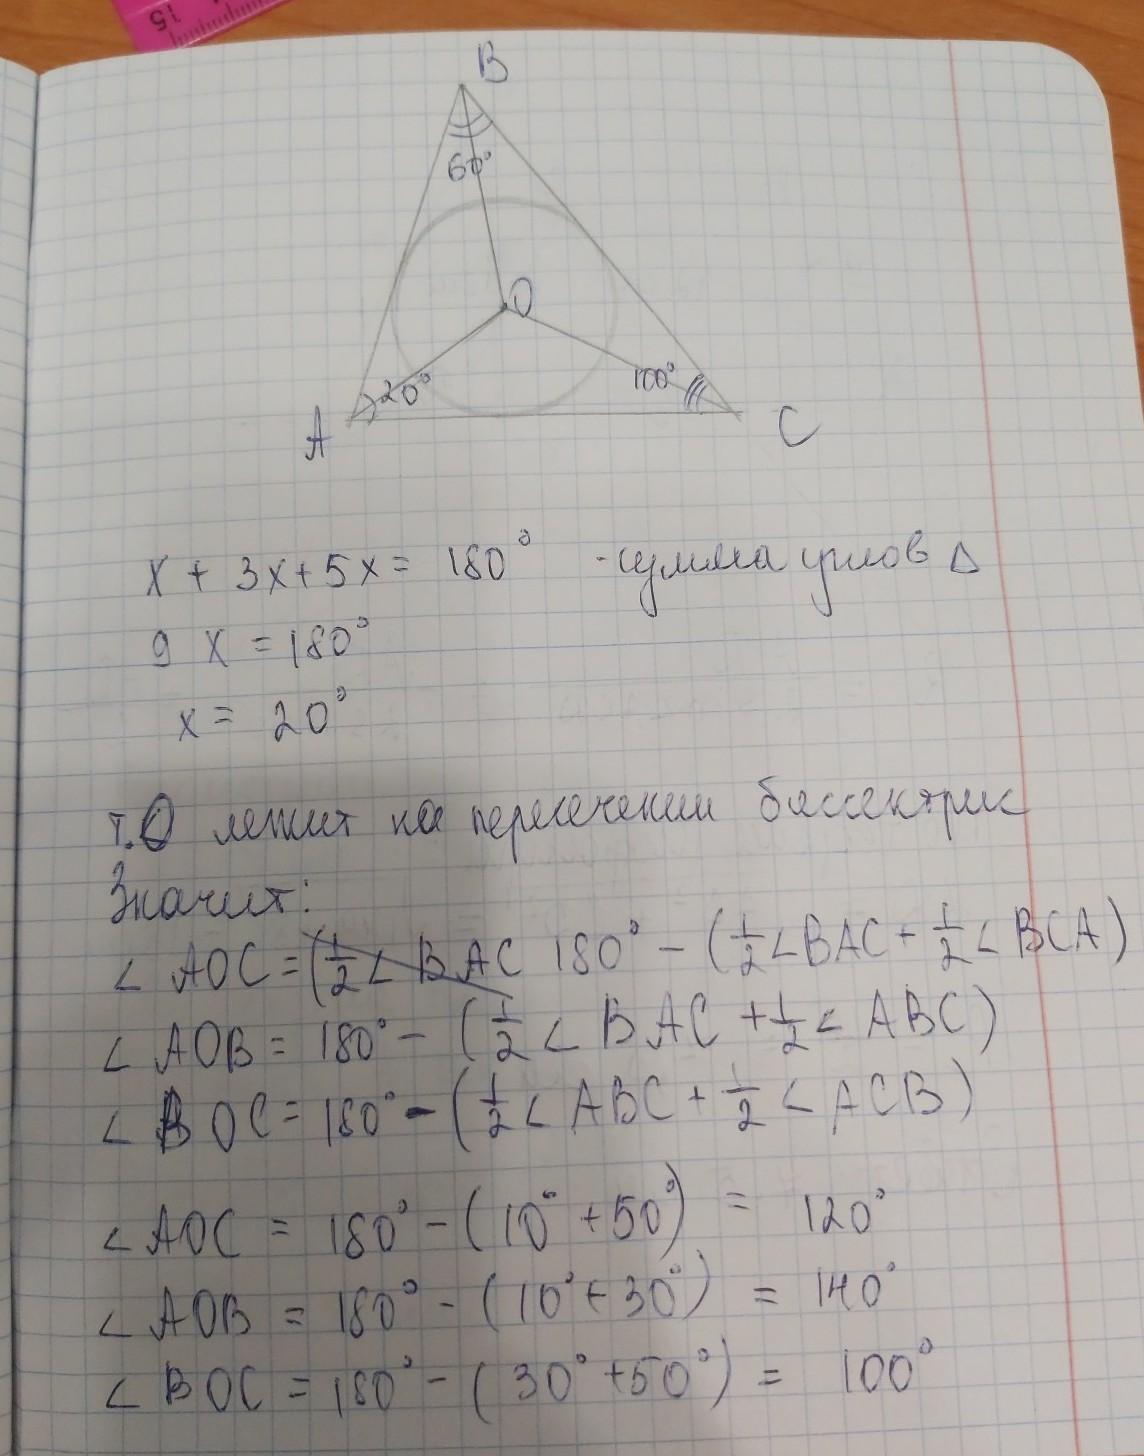 15
B
60°
O
A 20° 100° C
x + 3x + 5x = 180° - сумма углов Δ
9 x = 180°
x = 20°
т.О лежит на пересечении биссектрис
Значит:
∠ AOC = (1/2 ∠ BAC 180° - (1/2 ∠ BAC + 1/2 ∠ BCA)
∠ AOB = 180° - (1/2 ∠ BAC + 1/2 ∠ ABC)
∠ BOC = 180° - (1/2 ∠ ABC + 1/2 ∠ ACB)
∠ AOC = 180° - (10° + 50°) = 120°
∠ AOB = 180° - (10° + 30°) = 140°
∠ BOC = 180° - (30° + 50°) = 100°